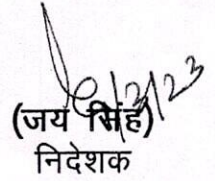 /3/23
(जय सिंह)
निदेशक